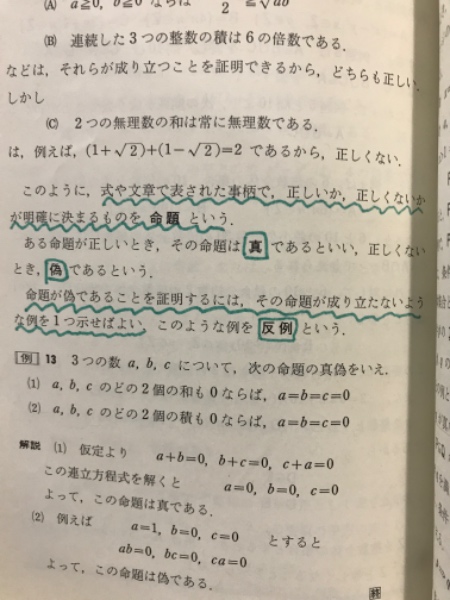 (A) a≧0, b≧0 ならば 2 ≦√ab
(B) 連続した3つの整数の積は6の倍数である.
などは, それらが成り立つことを証明できるから, どちらも正しい.
しかし
(C) 2つの無理数の和は常に無理数である.
は, 例えば, (1+√2)+(1-√2)=2 であるから, 正しくない.
このように, 式や文章で表された事柄で, 正しいか, 正しくないか
が明確に決まるものを 命題 という.
ある命題が正しいとき, その命題は 真 であるといい, 正しくない
とき, 偽 であるという.
命題が偽であることを証明するには, その命題が成り立たないよう
な例を1つ示せばよい. このような例を 反例 という.
例 13 3つの数 a, b, c について, 次の命題の真偽をいえ.
(1) a, b, c のどの2個の和も0ならば, a=b=c=0
(2) a, b, c のどの2個の積も0ならば, a=b=c=0
解説 (1) 仮定より a+b=0, b+c=0, c+a=0
この連立方程式を解くと a=0, b=0, c=0
よって, この命題は真である.
(2) 例えば a=1, b=0, c=0 とすると
ab=0, bc=0, ca=0
よって, この命題は偽である.
終